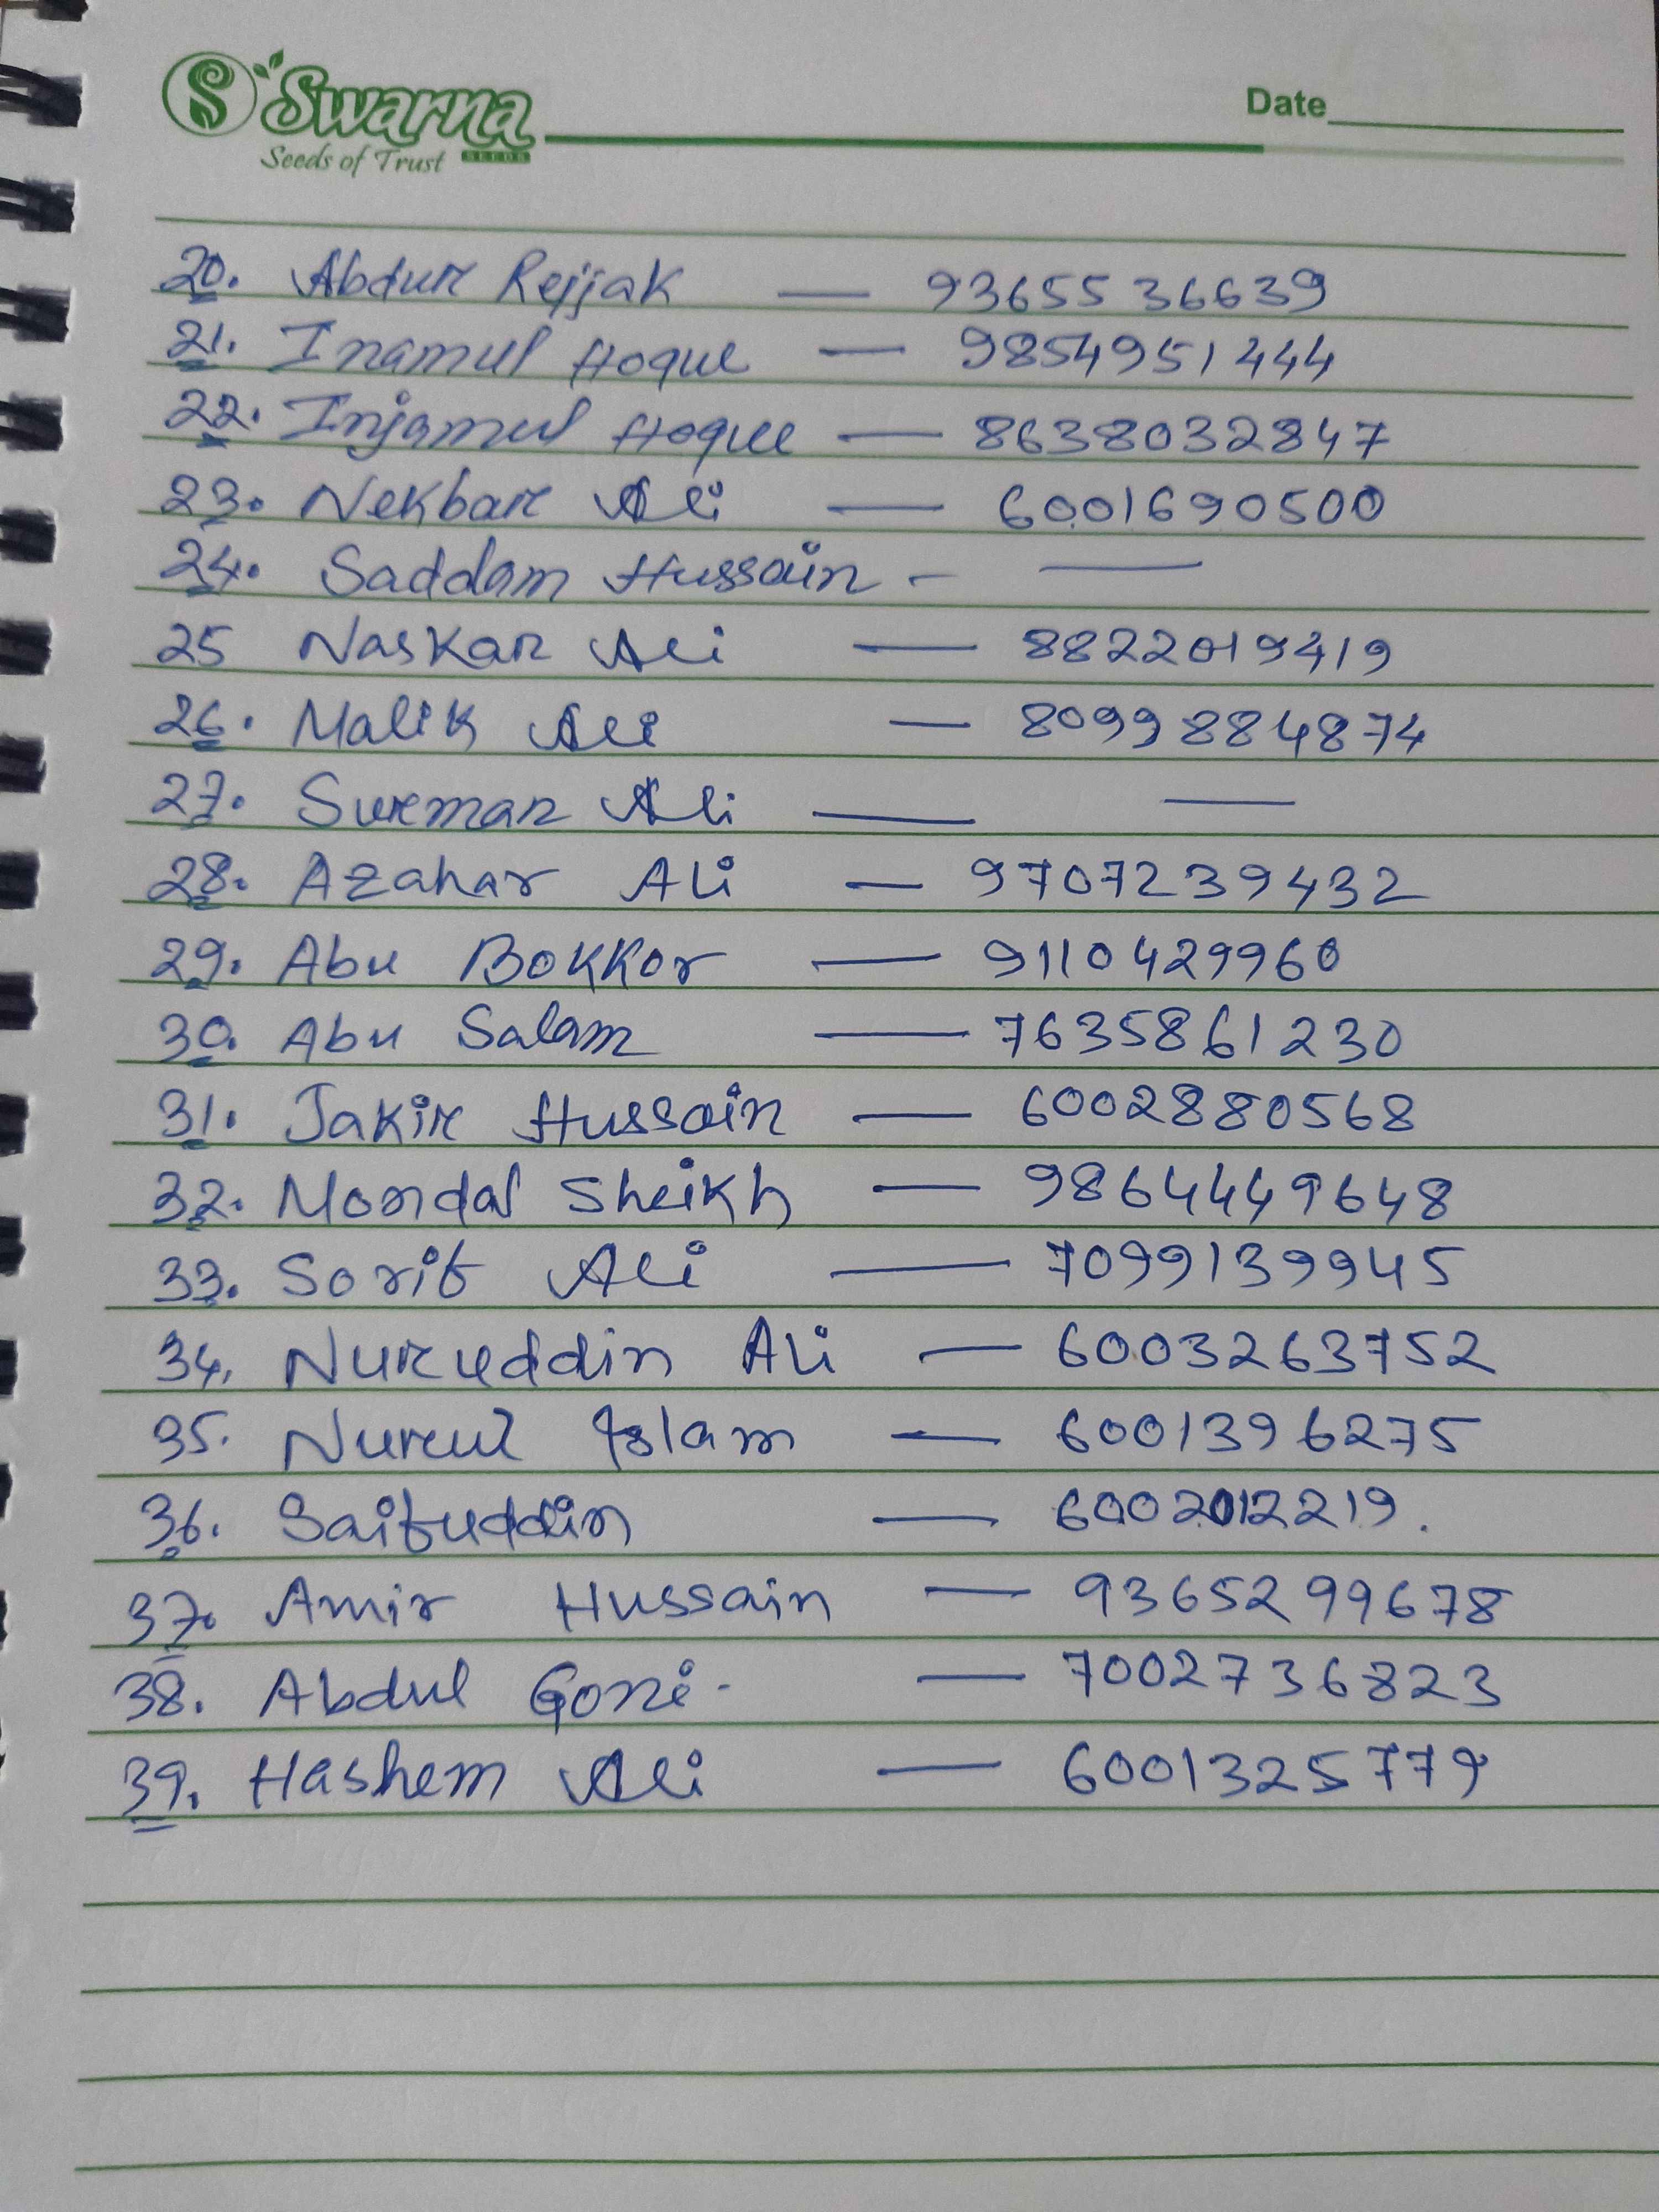 Swarna
Seeds of Trust SEEDS
Date
20. Abdur Rejjak — 9365536639
21. Inamul Hoque — 9854951444
22. Injamul Hoque — 8638032847
23. Nekbar Ali — 6001690500
24. Saddam Hussain - —
25 Naskar Ali — 8822019419
26. Malik Ali — 8099884874
27. Surman Ali — —
28. Azahar Ali — 9707239432
29. Abu Bokkor — 9110429960
30. Abu Salam — 7635861230
31. Jakir Hussain — 6002880568
32. Mondal Sheikh — 9864449648
33. Sorif Ali — 7099139945
34. Nuruddin Ali — 6003263752
35. Nurul Islam — 6001396275
36. Saifuddin — 6002012219.
37. Amir Hussain — 9365299678
38. Abdul Goni - — 7002736823
39. Hashem Ali — 6001325779